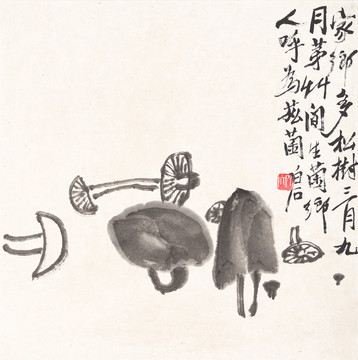 家鄉多松樹二三月九
月茅艸間生菌鄉
人呼為菰菌白石